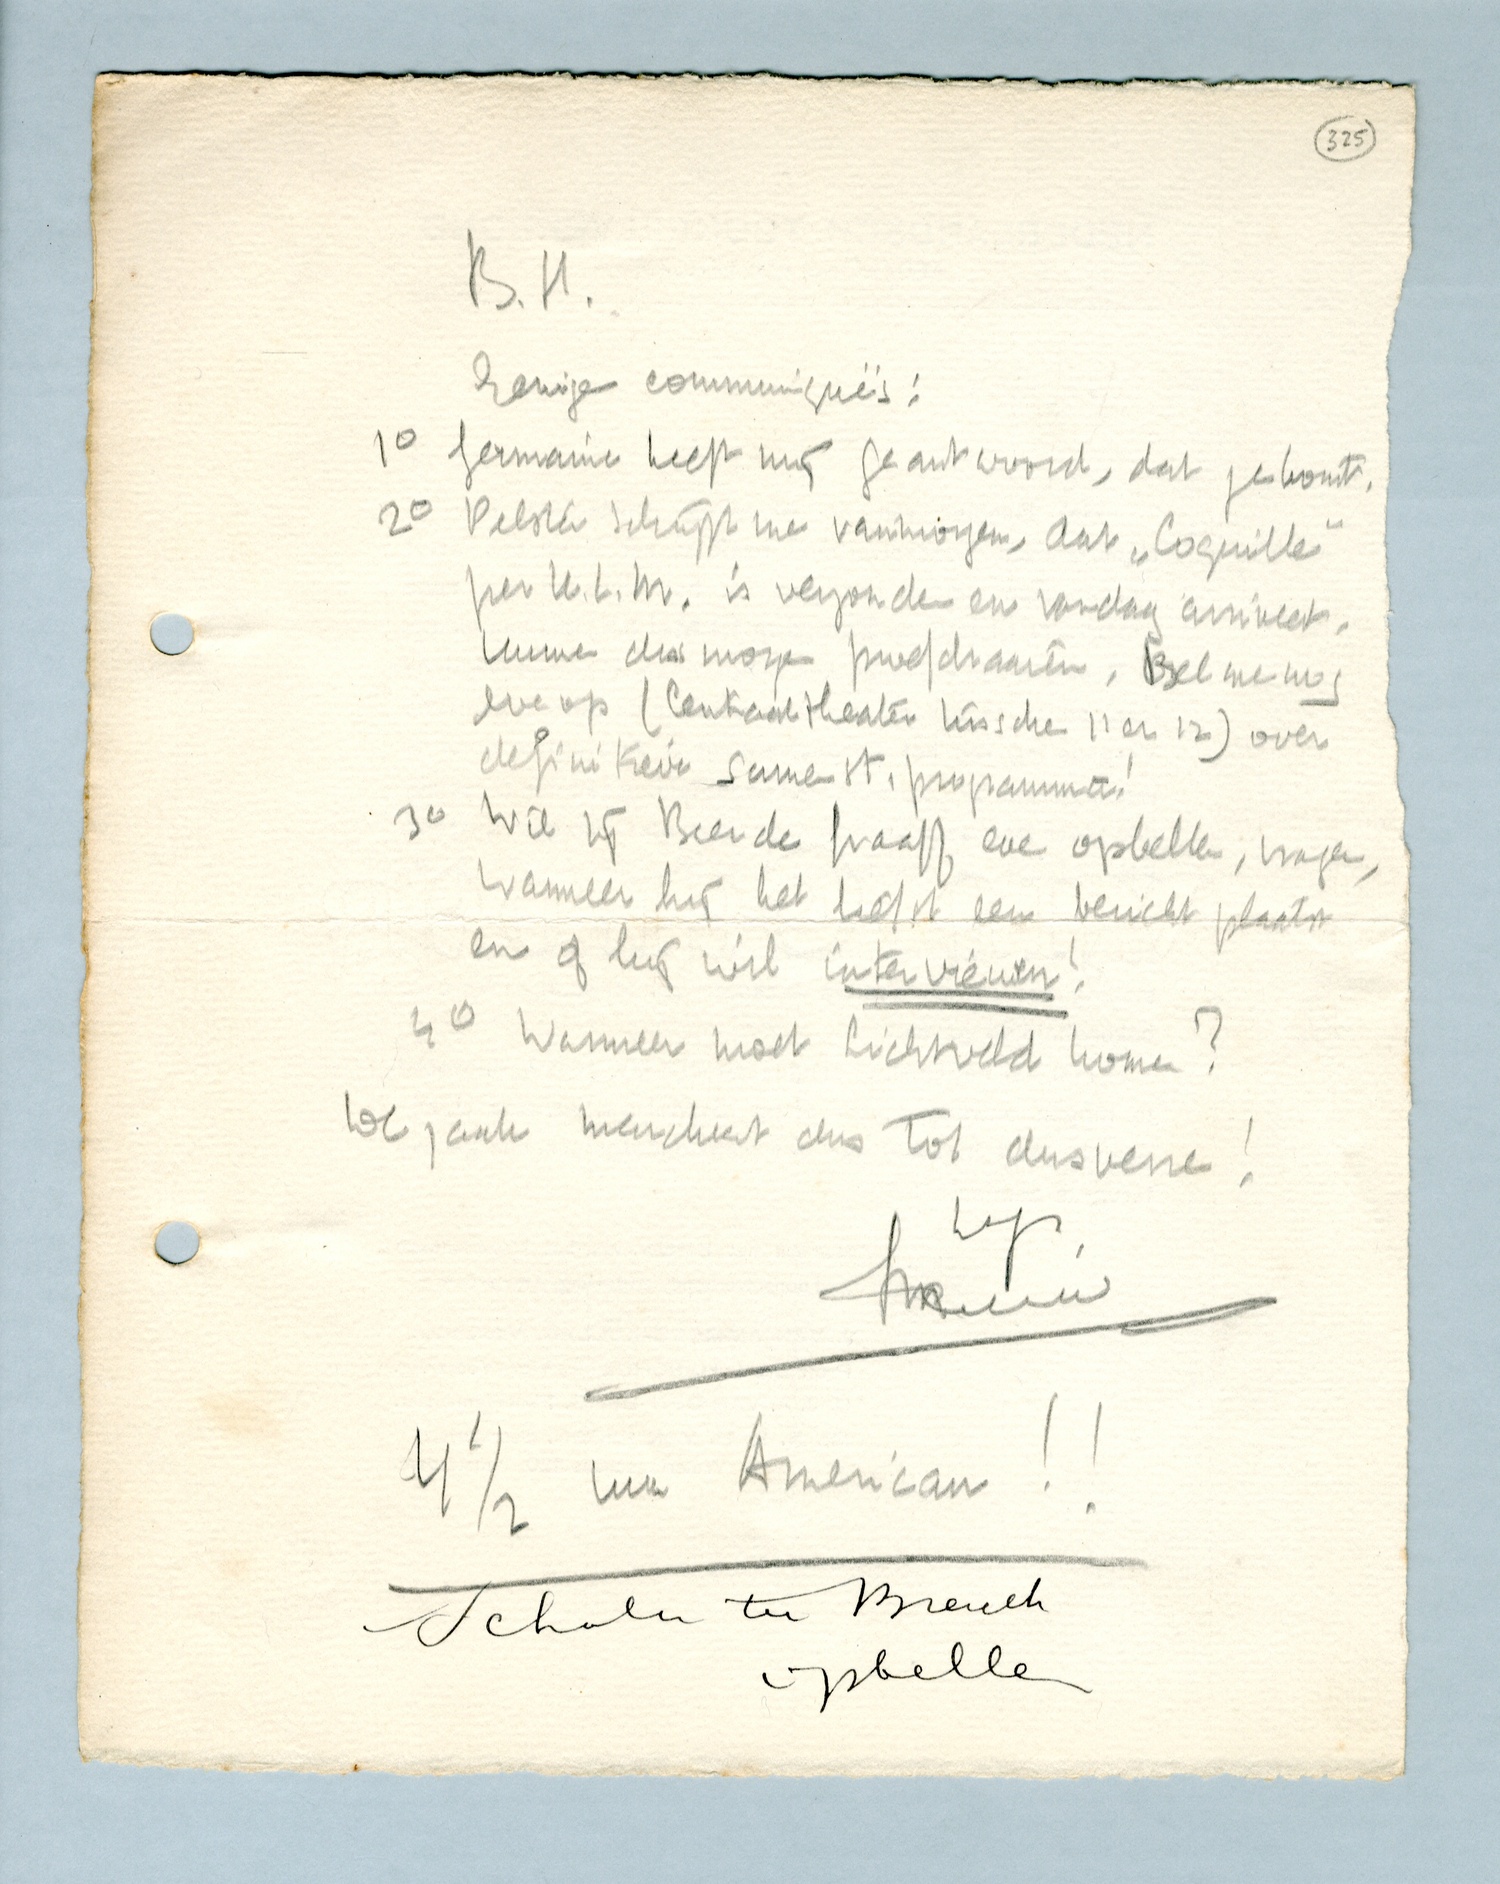 325
B.H.
Eenige communiqué's:
1° Germaine heeft mij geantwoord, dat ze komt.
2° schrijft me vanmorgen, dat „Coquille"
per K.L.M. is verzonden en vandaag arriveert.
dus morgen proefdraaien. Bel me nog
even op (Centraaltheater tusschen 11 en 12) over
definitieve programma!
3° Wil jij Graaff even opbellen, vragen,
wanneer hij het liefst een bericht plaatst
en of hij wil interviewen!
4° Wanneer moet Lichtveld komen?
De zaak marcheert dus tot dusverre!
4 1/2 uur American!!
Scholte ten
opbellen